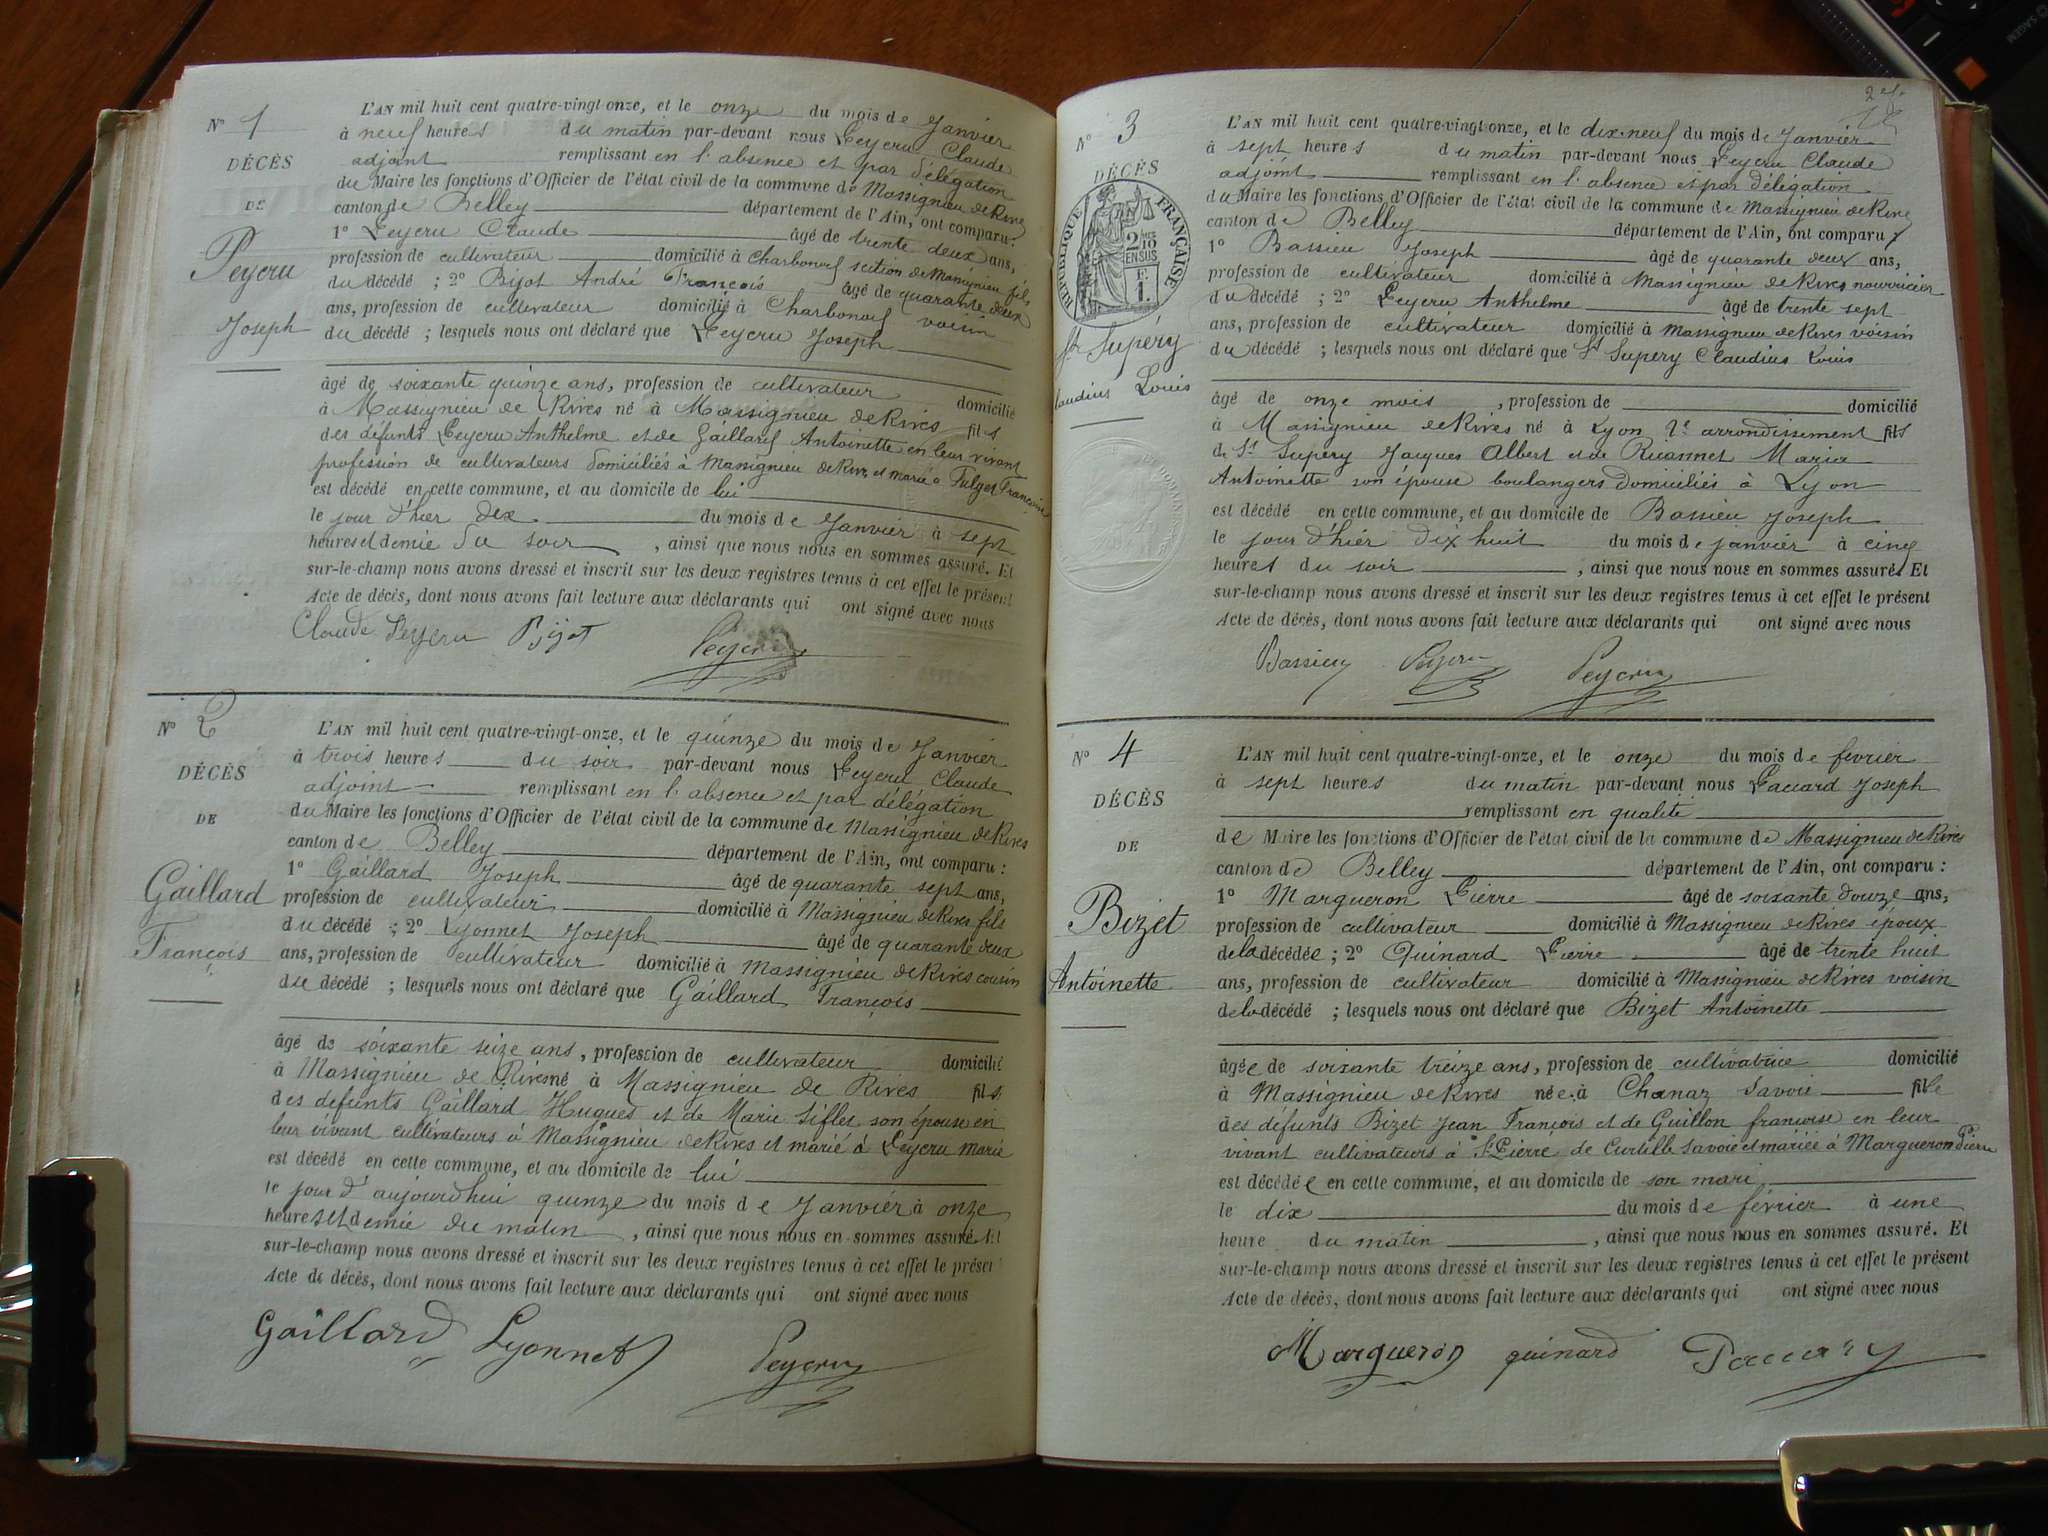 N° 1
DÉCÈS
DE
Peyeru
Joseph
L'AN mil huit cent quatre-vingt-onze, et le onze du mois de Janvier
à neuf heures du matin par-devant nous Peyeru Claude
adjoint remplissant en l'absence et par délégation
du Maire les fonctions d'Officier de l'état civil de la commune de Massignieu de Rives
canton de Belley département de l'Ain, ont comparu:
1° Peyeru Claude âgé de trente deux ans,
profession de cultivateur domicilié à Charbonod section de Massignieu fils
du décédé ; 2° Bijot André François âgé de quarante deux
ans, profession de cultivateur domicilié à Charbonod voisin
du décédé ; lesquels nous ont déclaré que Peyeru Joseph
âgé de soixante quinze ans, profession de cultivateur domicilié
à Massignieu de Rives né à Massignieu de Rives fils
des défunts Peyeru Anthelme et de Gaillard Antoinette en leur vivant
profession de cultivateurs domiciliés à Massignieu de Rives et marié à Fulget Françoise
est décédé en cette commune, et au domicile de lui
le jour d'hier dix du mois de Janvier à sept
heures et demie du soir, ainsi que nous nous en sommes assuré. Et
sur-le-champ nous avons dressé et inscrit sur les deux registres tenus à cet effet le présent
Acte de décès, dont nous avons fait lecture aux déclarants qui ont signé avec nous
Claude Peyeru Bijot Peyeru
N° 2
DÉCÈS
DE
Gaillard
François
L'AN mil huit cent quatre-vingt-onze, et le quinze du mois de Janvier
à trois heures du soir par-devant nous Peyeru Claude
adjoint remplissant en l'absence et par délégation
du Maire les fonctions d'Officier de l'état civil de la commune de Massignieu de Rives
canton de Belley département de l'Ain, ont comparu:
1° Gaillard Joseph âgé de quarante sept ans,
profession de cultivateur domicilié à Massignieu de Rives fils
du décédé ; 2° Lyonnet Joseph âgé de quarante deux
ans, profession de cultivateur domicilié à Massignieu de Rives cousin
du décédé ; lesquels nous ont déclaré que Gaillard François
âgé de soixante seize ans, profession de cultivateur domicilié
à Massignieu de Rives né à Massignieu de Rives fils
des defunts Gaillard Hugues et de Marie Siflet son épouse en
leur vivant cultivateurs à Massignieu de Rives et marié à Peyeru Marie
est décédé en cette commune, et au domicile de lui
le jour d'aujourdhui quinze du mois de Janvier à onze
heures et demie du matin, ainsi que nous nous en sommes assuré. Et
sur-le-champ nous avons dressé et inscrit sur les deux registres tenus à cet effet le présent
Acte de décès, dont nous avons fait lecture aux déclarants qui ont signé avec nous
Gaillard Lyonnet Peyeru
N° 3
DÉCÈS
RÉPUBLIQUE FRANÇAISE
2/10
EN SUS
F.
1.
St Supéry
Claudius Louis
L'AN mil huit cent quatre-vingt-onze, et le dix-neuf du mois de Janvier
à sept heures du matin par-devant nous Peyeru Claude
adjoint remplissant en l'absence et par délégation
du Maire les fonctions d'Officier de l'état civil de la commune de Massignieu de Rives
canton de Belley département de l'Ain, ont comparu:
1° Bassieu Joseph âgé de quarante deux ans,
profession de cultivateur domicilié à Massignieu de Rives nourricier
du décédé ; 2° Peyeru Anthelme âgé de trente sept
ans, profession de cultivateur domicilié à Massignieu de Rives voisin
du décédé ; lesquels nous ont déclaré que St Supery Claudius Louis
âgé de onze mois, profession de domicilié
à Massignieu de Rives né à Lyon 2e arrondissement fils
de St Supery Jacques Albert et de Ruannet Maria
Antoinette son épouse boulangers domiciliés à Lyon
est décédé en cette commune, et au domicile de Bassieu Joseph
le jour d'hier dix huit du mois de janvier à cinq
heures du soir, ainsi que nous nous en sommes assuré. Et
sur-le-champ nous avons dressé et inscrit sur les deux registres tenus à cet effet le présent
Acte de décès, dont nous avons fait lecture aux déclarants qui ont signé avec nous
Bassieu Peyeru Peyeru
N° 4
DÉCÈS
DE
Bizet
Antoinette
L'AN mil huit cent quatre-vingt-onze, et le onze du mois de fevrier
à sept heures du matin par-devant nous Paccard Joseph
remplissant en qualité
de Maire les fonctions d'Officier de l'état civil de la commune de Massignieu de Rives
canton de Belley département de l'Ain, ont comparu :
1° Margueron Pierre âgé de soixante douze ans,
profession de cultivateur domicilié à Massignieu de Rives époux
de la décédée ; 2° Quinard Pierre âgé de trente huit
ans, profession de cultivateur domicilié à Massignieu de Rives voisin
de la décédé ; lesquels nous ont déclaré que Bizet Antoinette
âgée de soixante treize ans, profession de cultivatrice domicilié
à Massignieu de Rives née à Chanaz Savoie fille
des défunts Bizet Jean François et de Guillon francoise en leur
vivant cultivateurs à St Pierre de Curtille Savoie et mariée à Margueron Pierre
est décédée en cette commune, et au domicile de son mari
le dix du mois de février à une
heure du matin, ainsi que nous nous en sommes assuré. Et
sur-le-champ nous avons dressé et inscrit sur les deux registres tenus à cet effet le présent
Acte de décès, dont nous avons fait lecture aux déclarants qui ont signé avec nous
Margueron quinard Paccard
SAGEM